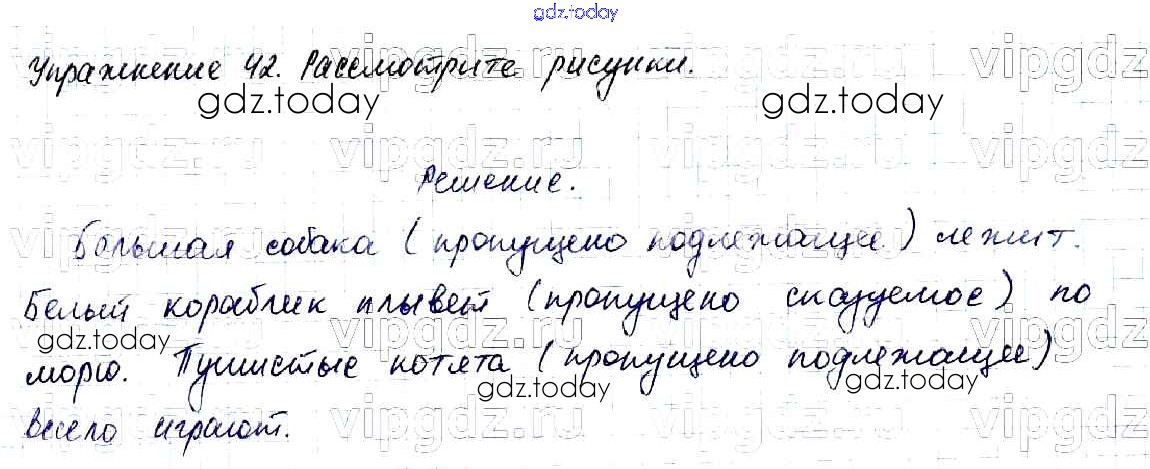 gdz.today
Упражнение 42. Рассмотрите рисунки.
Решение.
Большая собака (пропущено подлежащее) лежит.
Белый кораблик плывет (пропущено сказуемое) по
морю. Пушистые котята (пропущено подлежащее)
весело играют.
gdz.today
gdz.today
gdz.today
gdz.today
gdz.today
vipgdz.ru
vipgdz.ru
vipgdz.ru
vipgdz.ru